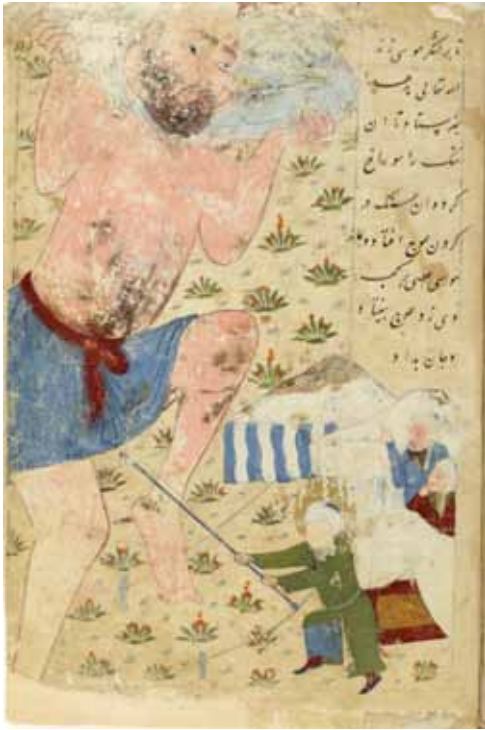 تا بر لشکر موسی زند
الله تعالی
بفرستاد تا آن
سنگ را سوراخ
کرد و آن سنگ در
گردن عوج افتاد و
موسی عصی بر کعب
وی زد و عوج بیفتاد و
و جان بداد